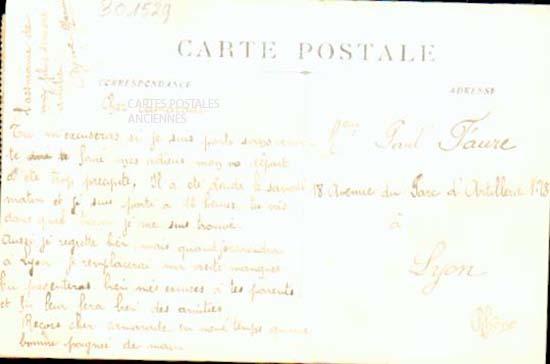 301529
CARTE POSTALE
CORRESPONDANCE
ADRESSE
CARTES POSTALES
ANCIENNES
Cher camarade
Tu m'excuseras si je suis parti sans venir
te faire mes adieux mon départ
a été trop précipité. Il a été décidé le samedi
matin et je suis parti a heures tu vois
dans quel je me suis trouvé.
Aussi je regrette bien mais quand je reviendrai
à Lyon je remplacerai ma visite manquée
Tu présenteras bien mes excuses à tes parents
et tu leur fera bien des amitiés
Reçois cher camarade en même temps
bonne poignée de main
l'assurance de
mes
Paul Faure
18 Avenue du Parc d'Artillerie
à
Lyon
Rhône